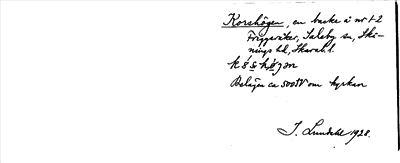 Korshögen, en backe å nr 1-2
Friggeråker, Saleby sn, Skå-
nings hd, Skarab. l.
Beläget ca 500 m V om kyrkan
J. Lundahl 1928.